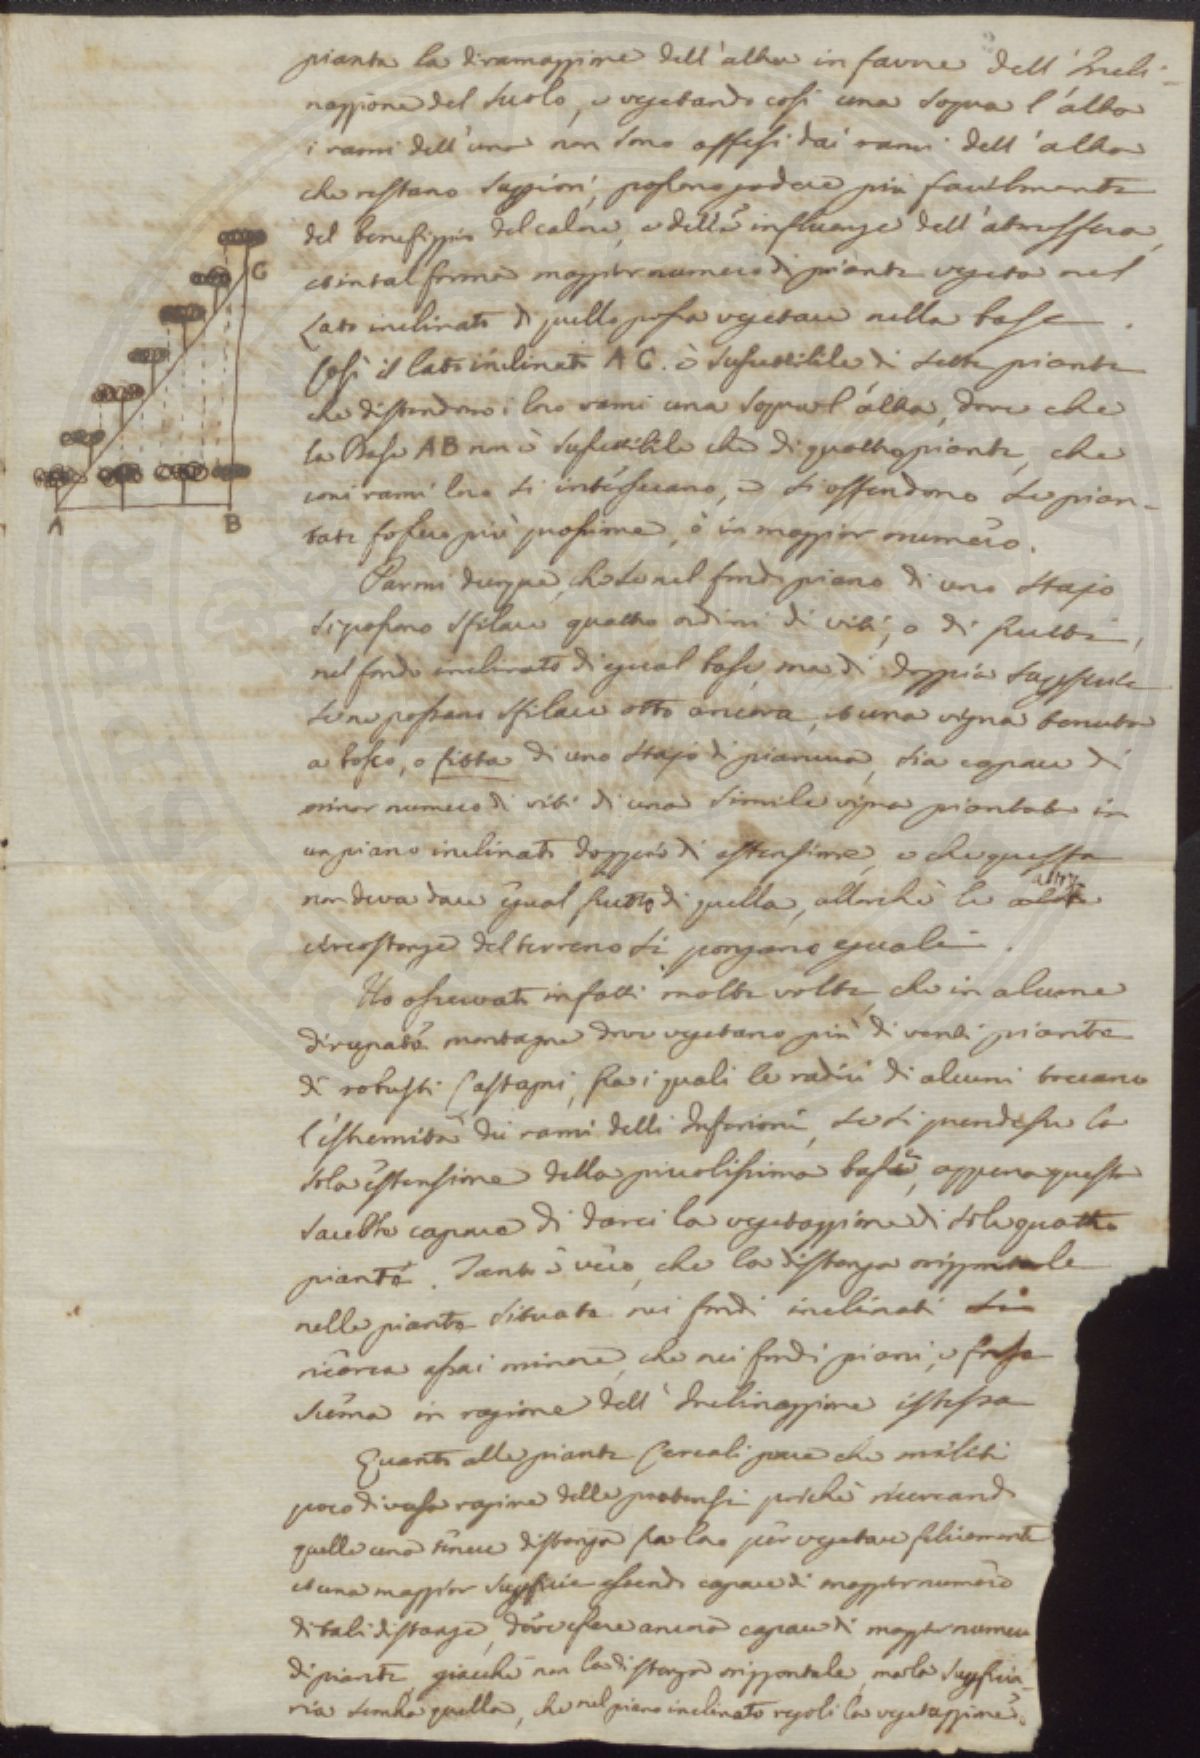 pianta la diramazzione dell'altra in favore dell'Incli-
nazzione del suolo, e vegetando così una sopra l'altra
i rami dell'una non sono offesi dai rami dell'altra
che restano superiori, possono godere più facilmente
del benefizzio del calore, e delle influenze dell'atmosfera,
et in tal forma maggior numero di piante vegeta nel
Lato inclinato di quello possa vegetare nella base.
Così il lato inclinato A C. è suscettibile di sette piante
che distendono i loro rami una sopra l'altra, dove che
la Base AB non è suscettibile che di quattro piante, che
coni rami loro si intersecano, e si offendono se pian-
tate fossero più prossime, ò in maggior numero.
Parmi dunque, che se nel fondo piano di uno stajo
si possono sfilare quattro ordini di viti, o di frutti,
nel fondo inclinato di egual base, ma di doppia superficie
se ne possano sfilare otto ancora, et una vigna tenuta
a bosco, o fitta di uno stajo di pianura, sia capace di
minor numero di viti di una simile vigna piantata in
un piano inclinato doppio di estensione, e che questa
non deva dare egual frutto di quella, allorchè le altre
circostanze del terreno si pongano eguali.
Ho osservato infatti molte volte, che in alcune
dirupate montagne dove vegetano più di venti piante
di robusti Castagni, fra i quali le radici di alcuni toccano
l'estremità dei rami delli Inferiori, se si prendesse la
sola estensione della piccolissima base, appena questa
sarebbe capace di darci la vegetazzione di sole quattro
piante. Tanto è vero, che la distanza orizzontale
nelle piante situate nei fondi inclinati si
ricerca assai minore, che nei fondi piani, e
scema in ragione dell'Inclinazzione istessa
Quanto alle piante Cereali pare che militi
poco diversa ragione delle pratensi poichè ricercando
quelle una tenue distanza fra loro per vegetare felicemente
et una maggior superficie essendo capace di maggior numero
di tali distanze, dove essere ancora capace di maggior numero
di piante, giacchè non la distanza orizzontale, ma la superficia-
ria sembra quella, che nel piano inclinato regoli la vegetazzione.
C
A
B